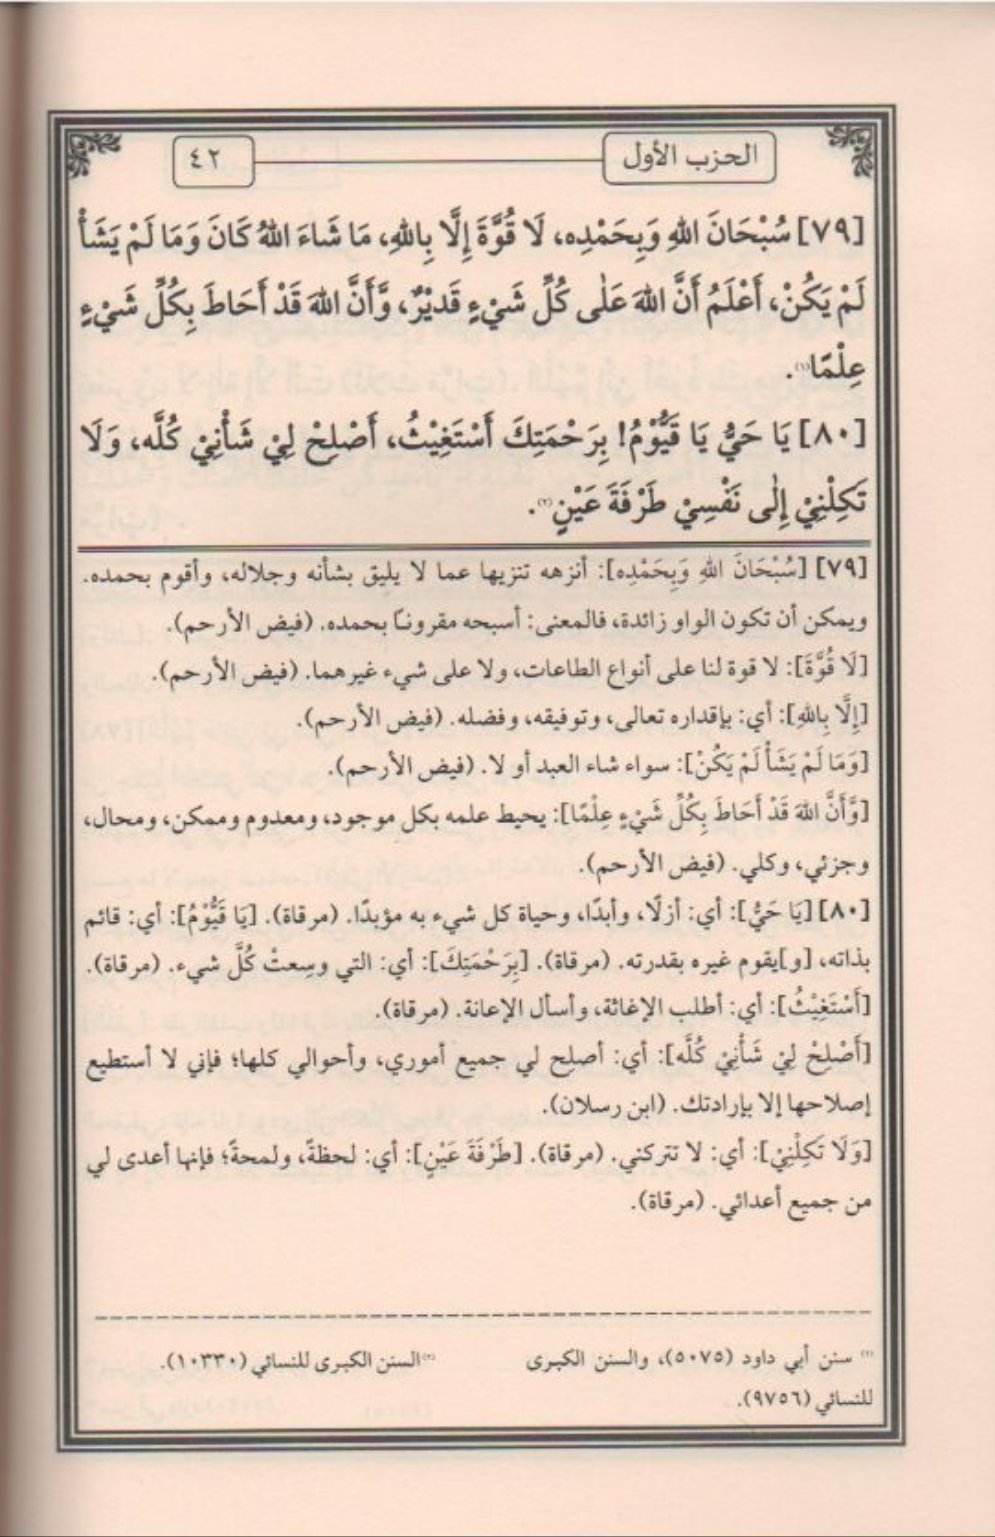 الحزب الأول
٤٢
[٧٩] سُبْحَانَ اللهِ وَبِحَمْدِه، لَا قُوَّةَ إِلَّا بِاللهِ، مَا شَاءَ اللهُ كَانَ وَمَا لَمْ يَشَأْ
لَمْ يَكُنْ، أَعْلَمُ أَنَّ اللهَ عَلٰى كُلِّ شَيْءٍ قَدِيْرٌ، وَّأَنَّ اللهَ قَدْ أَحَاطَ بِكُلِّ شَيْءٍ
عِلْمًا(١).
[٨٠] يَا حَيُّ يَا قَيُّوْمُ! بِرَحْمَتِكَ أَسْتَغِيْثُ، أَصْلِحْ لِيْ شَأْنِيْ كُلَّه، وَلَا
تَكِلْنِيْ إِلٰى نَفْسِيْ طَرْفَةَ عَيْنٍ(٢).
[٧٩] [سُبْحَانَ اللهِ وَبِحَمْدِه]: أنزهه تنزيها عما لا يليق بشأنه وجلاله، وأقوم بحمده.
ويمكن أن تكون الواو زائدة، فالمعنى: أسبحه مقرونًا بحمده. (فيض الأرحم).
[لَا قُوَّةَ]: لا قوة لنا على أنواع الطاعات، ولا على شيء غيرهما. (فيض الأرحم).
[إِلَّا بِاللهِ]: أي: بإقداره تعالى، وتوفيقه، وفضله. (فيض الأرحم).
[وَمَا لَمْ يَشَأْ لَمْ يَكُنْ]: سواء شاء العبد أو لا. (فيض الأرحم).
[وَّأَنَّ اللهَ قَدْ أَحَاطَ بِكُلِّ شَيْءٍ عِلْمًا]: يحيط علمه بكل موجود، ومعدوم وممكن، ومحال،
وجزئي، وكلي. (فيض الأرحم).
[٨٠] [يَا حَيُّ]: أي: أزلًا، وأبدًا، وحياة كل شيء به مؤبدًا. (مرقاة). [يَا قَيُّوْمُ]: أي: قائم
بذاته، [و]يقوم غيره بقدرته. (مرقاة). [بِرَحْمَتِكَ]: أي: التي وسِعتْ كُلَّ شيء. (مرقاة).
[أَسْتَغِيْثُ]: أي: أطلب الإغاثة، وأسأل الإعانة. (مرقاة).
[أَصْلِحْ لِيْ شَأْنِيْ كُلَّه]: أي: أصلِح لي جميع أموري، وأحوالي كلها؛ فإني لا أستطيع
إصلاحها إلا بإرادتك. (ابن رسلان).
[وَلَا تَكِلْنِيْ]: أي: لا تتركني. (مرقاة). [طَرْفَةَ عَيْنٍ]: أي: لحظةً، ولمحةً؛ فإنها أعدى لي
من جميع أعدائي. (مرقاة).
(١) سنن أبي داود (٥٠٧٥)، والسنن الكبرى
للنسائي (٩٧٥٦).
(٢) السنن الكبرى للنسائي (١٠٣٣٠).